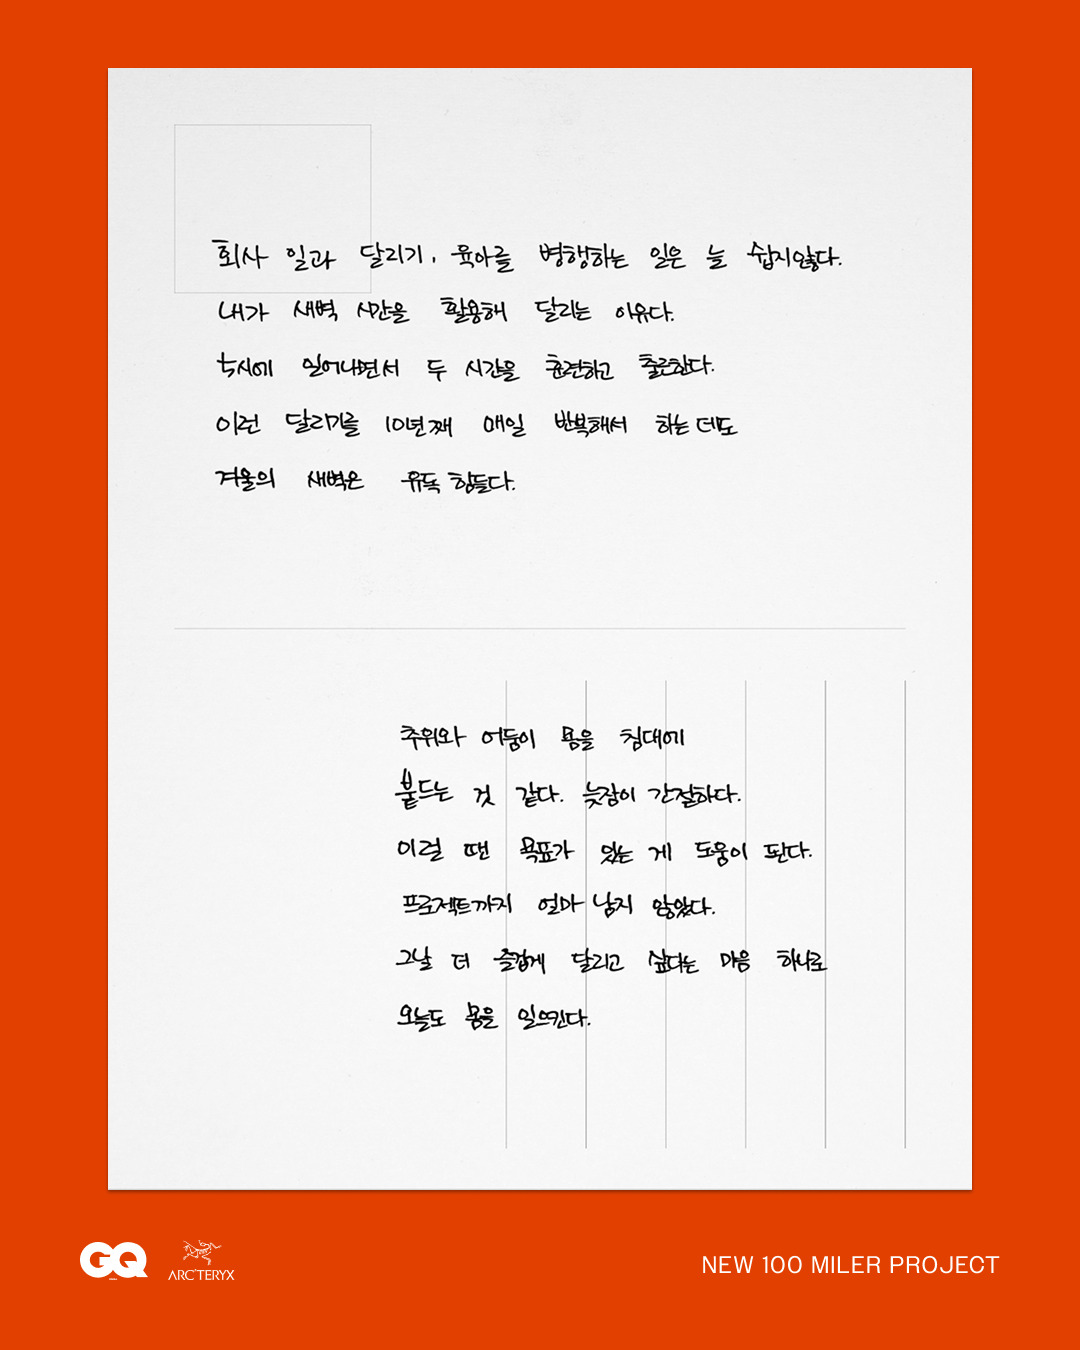 회사 일과 달리기, 육아를 병행하는 일은 늘 쉽지않다.
내가 새벽 시간을 활용해 달리는 이유다.
5시에 일어나면서 두 시간을 훈련하고 출근한다.
이런 달리기를 10년째 매일 반복해서 하는데도
겨울의 새벽은 유독 힘들다.
추위와 어둠이 몸을 침대에
붙드는 것 같다. 늦잠이 간절하다.
이럴 땐 목표가 있는 게 도움이 된다.
프로젝트까지 얼마 남지 않았다.
그날 더 즐겁게 달리고 싶다는 마음 하나로
오늘도 몸을 일으킨다.
GQ
ARC'TERYX
NEW 100 MILER PROJECT